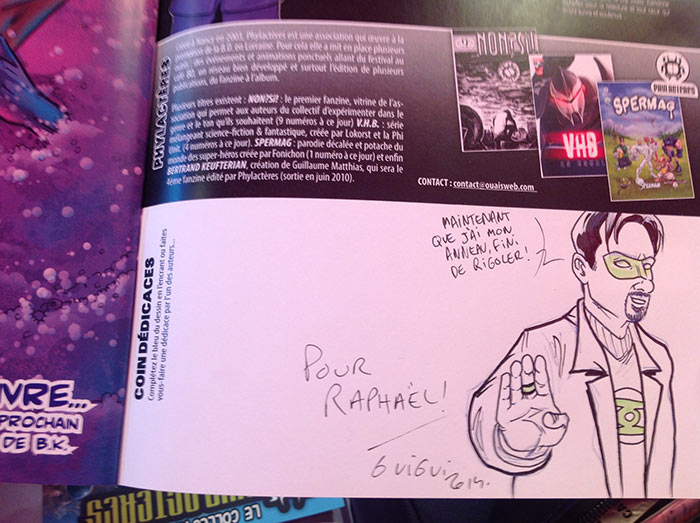 PHYLACTÈRES
Créée à Nancy en 2003, Phylactères est une association qui œuvre à la
promotion de la B.D. en Lorraine. Pour cela elle a mit en place plusieurs
des événements et animations ponctuels allant du festival au
café BD, un réseau bien développé et surtout l'édition de plusieurs
publications, du fanzine à l'album.
Plusieurs titres existent : NON?SI! : le premier fanzine, vitrine de l'as-
sociation qui permet aux auteurs du collectif d'expérimenter dans le
genre et le ton qu'ils souhaitent (9 numéros à ce jour) V.H.B. : série
mélangeant science-fiction & fantastique, créée par Lokorst et la Phi
Unit. (4 numéros à ce jour). SPERMAG : parodie décalée et potache du
monde des super-héros créée par Fonichon (1 numéro à ce jour) et enfin
BERTRAND KEUFTERIAN, création de Guillaume Matthias, qui sera le
4ème fanzine édité par Phylactères (sortie en juin 2010).
NON?SI!
VHB
SPERMAG
PHYLACTERES
CONTACT : contact@ouaisweb.com
COIN DÉDICACES
Complétez le bleu du dessin en l'encrant ou faites
vous-faire une dédicace par l'un des auteurs...
MAINTENANT
QUE J'AI MON
ANNEAU, FINI
DE RIGOLER!
POUR
RAPHAËL!
GuiGui 2014.
IVRE...
PROCHAIN
DE B.K.
LE COLLEC